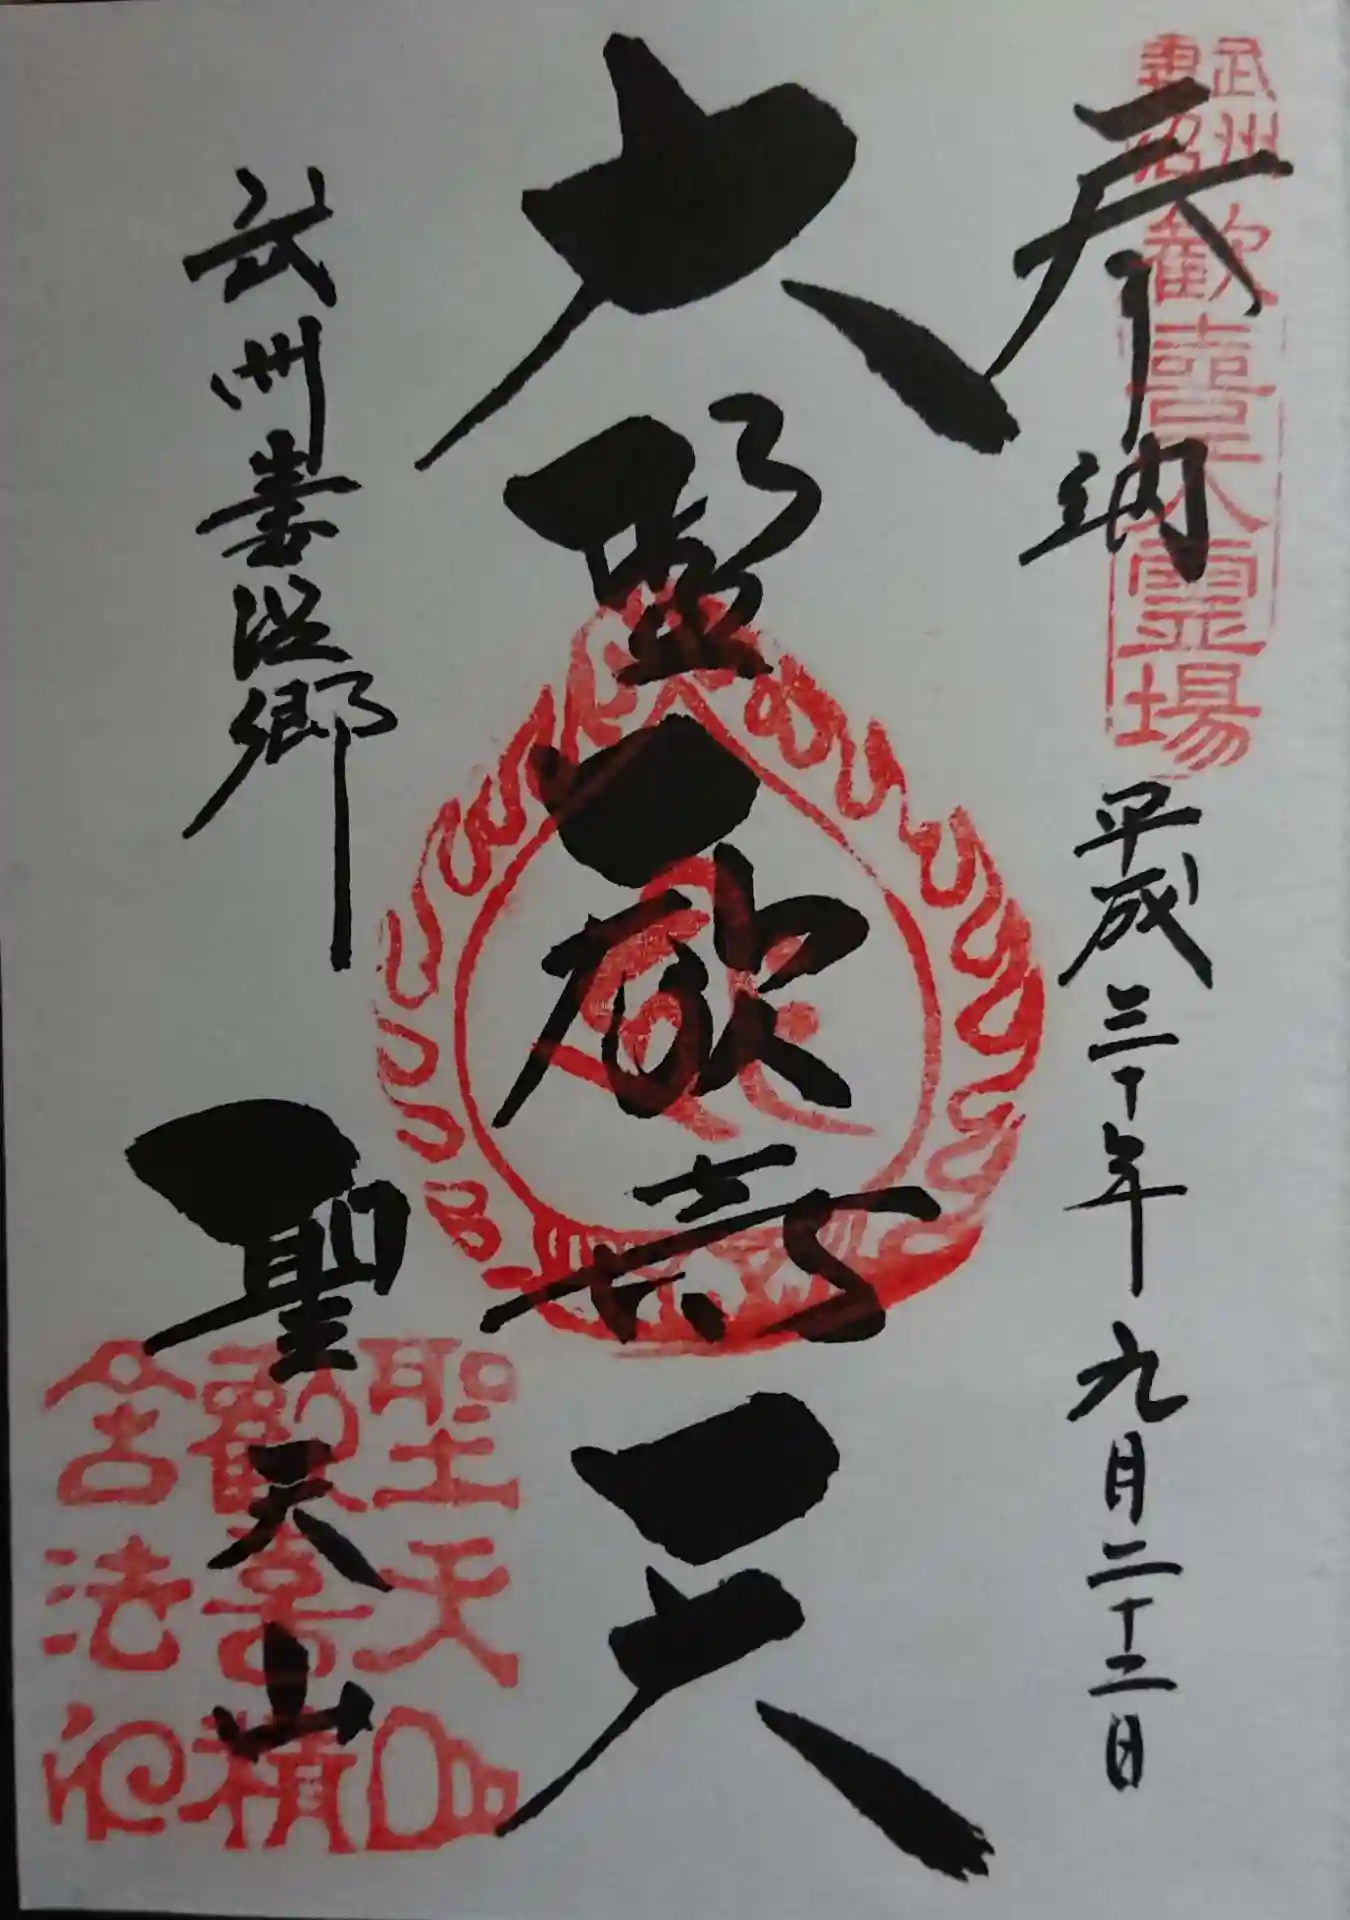 奉納
武州
妻沼
歓喜天霊場
平成三十年九月二十二日
大聖歓喜天
武州妻沼郷
聖天山
聖天山
歓喜